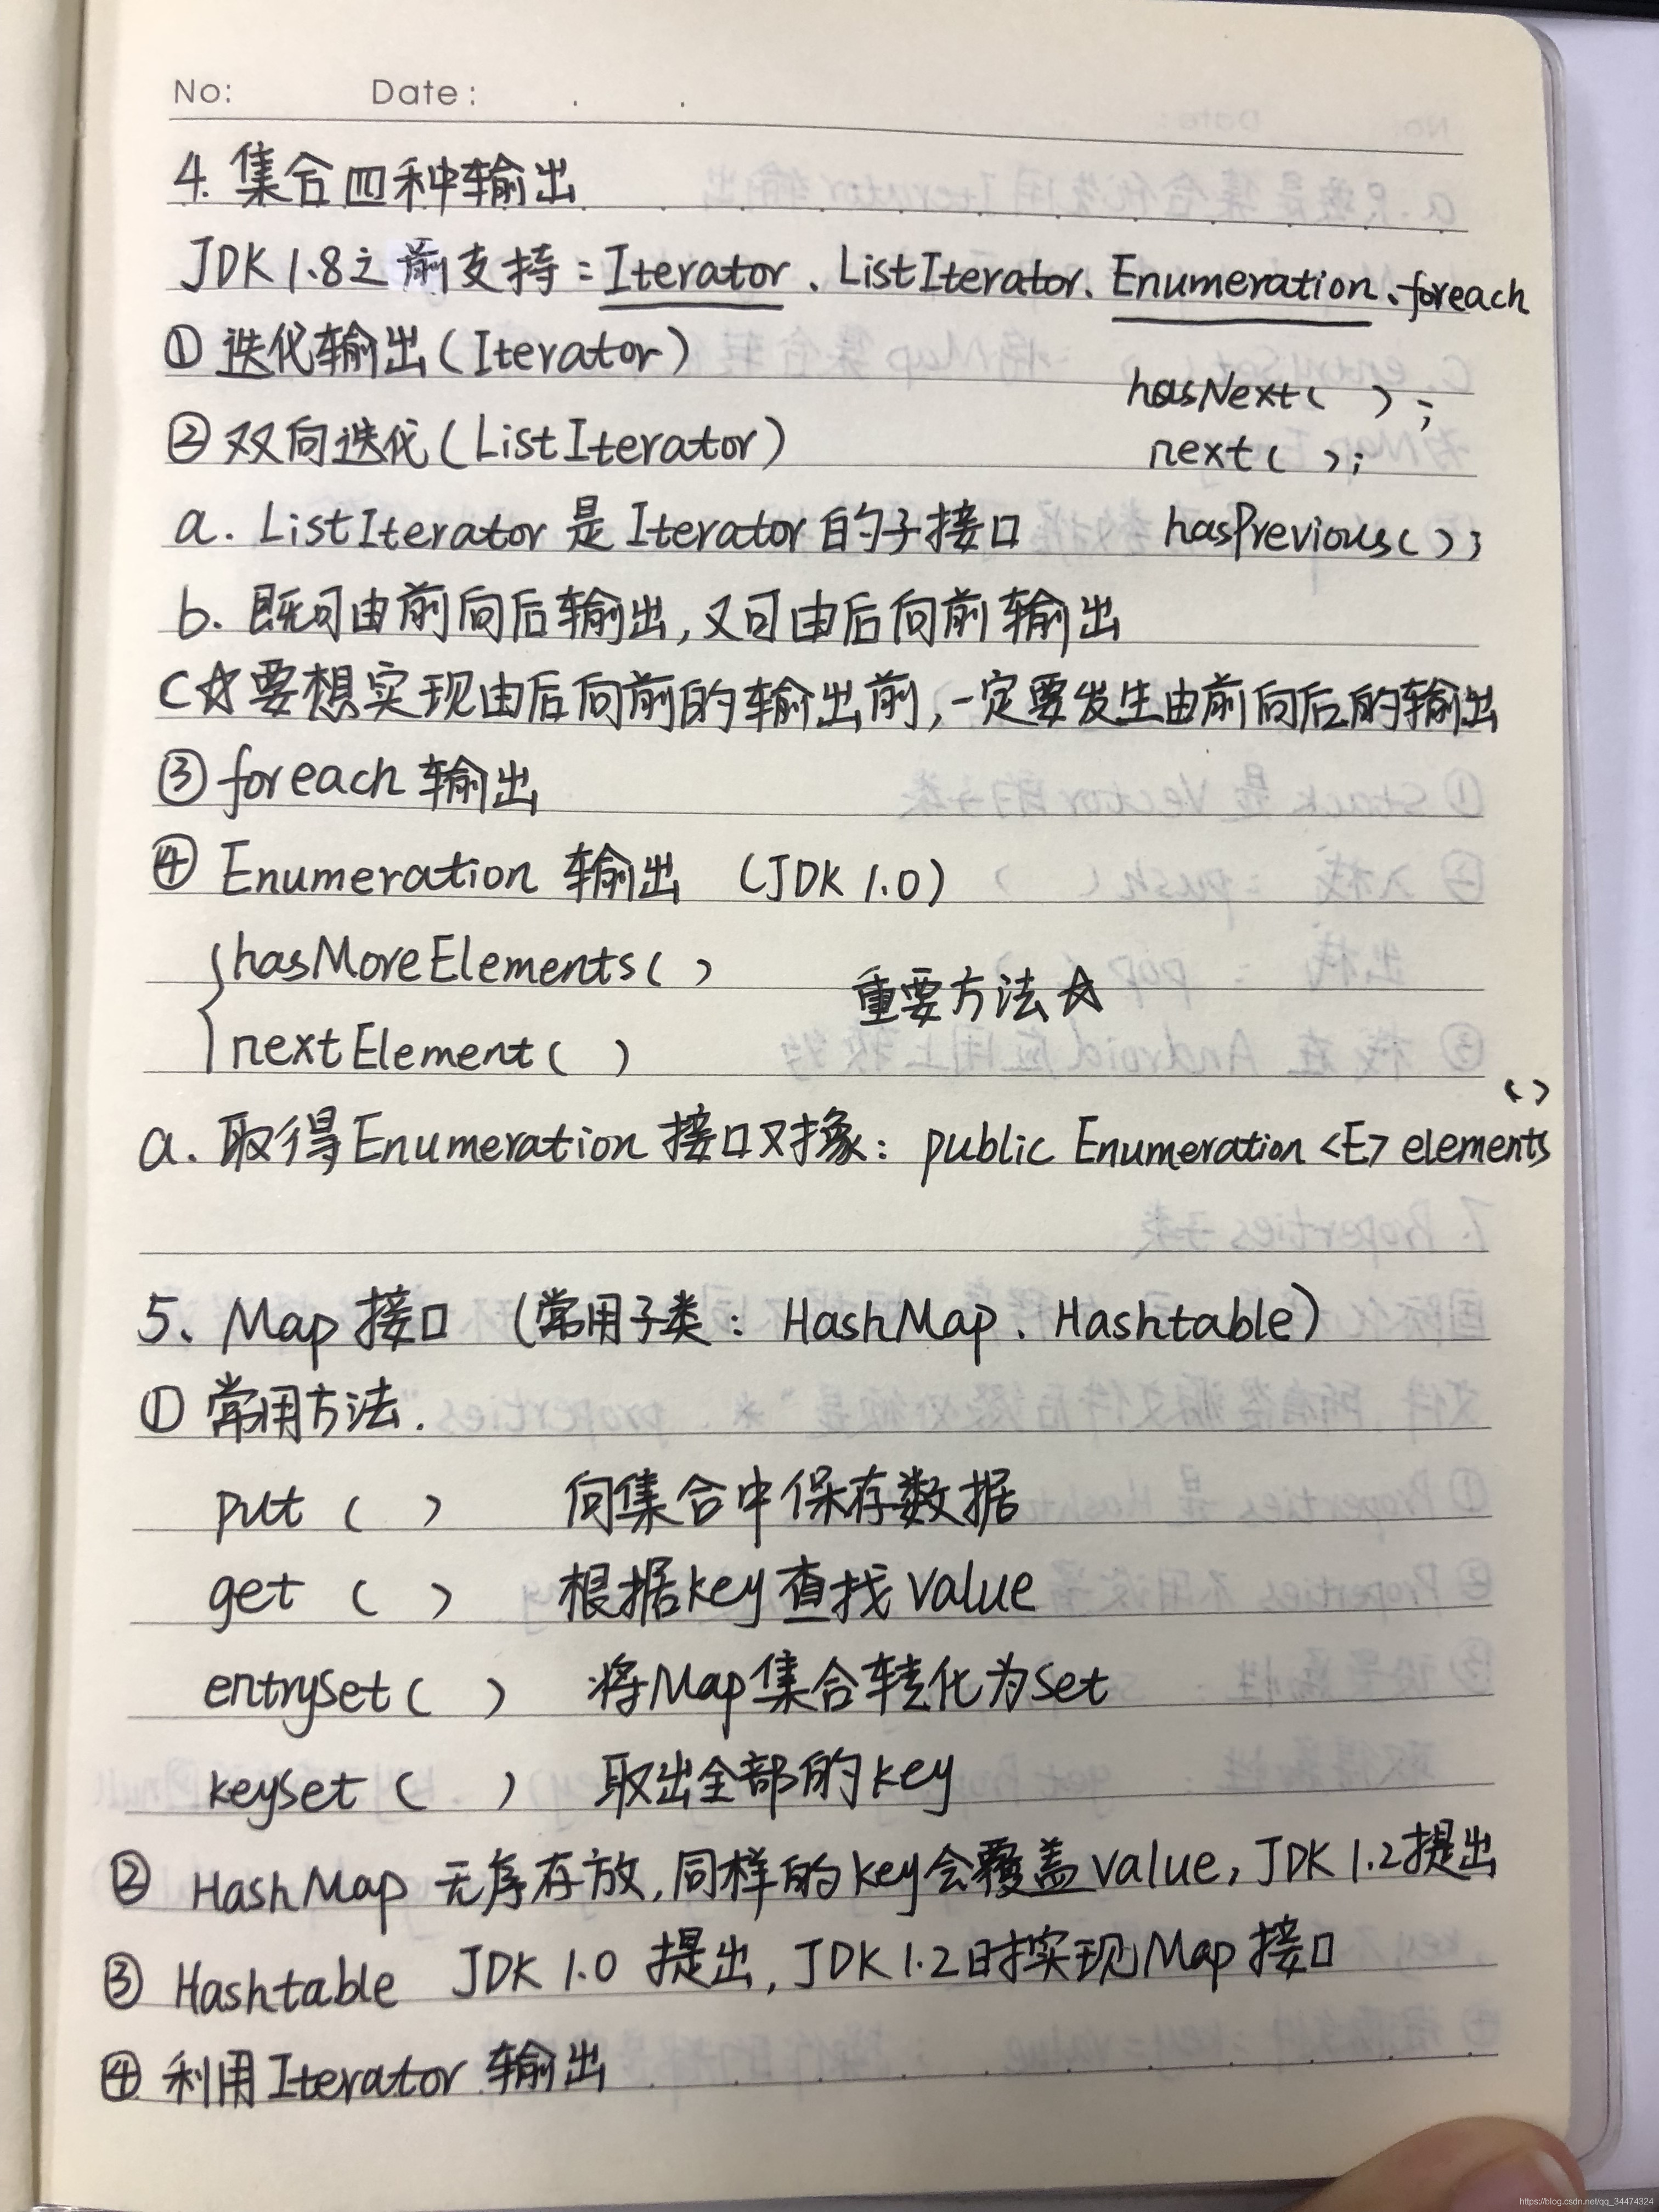 No: Date: . .
4. 集合四种输出
JDK 1.8之前支持：Iterator、ListIterator、Enumeration、foreach
① 迭代输出(Iterator)
hasNext( );
② 双向迭代(ListIterator)
next( );
a. ListIterator 是 Iterator 的子接口
hasPrevious( );
b. 既可由前向后输出,又可由后向前输出
C☆要想实现由后向前的输出前,一定要发生由前向后的输出
③ foreach 输出
④ Enumeration 输出 (JDK 1.0)
hasMoreElements( )
重要方法☆
nextElement( )
a. 取得Enumeration 接口对象: public Enumeration <E> elements ( )
5、Map 接口 (常用子类: HashMap、Hashtable)
① 常用方法.
put ( ) 向集合中保存数据
get ( ) 根据key查找value
entrySet ( ) 将Map集合转化为Set
keySet ( ) 取出全部的key
② HashMap 无序存放,同样的key会覆盖value, JDK 1.2提出
③ Hashtable JDK 1.0 提出, JDK 1.2时实现Map 接口
④ 利用Iterator 输出
https://blog.csdn.net/qq_34474324